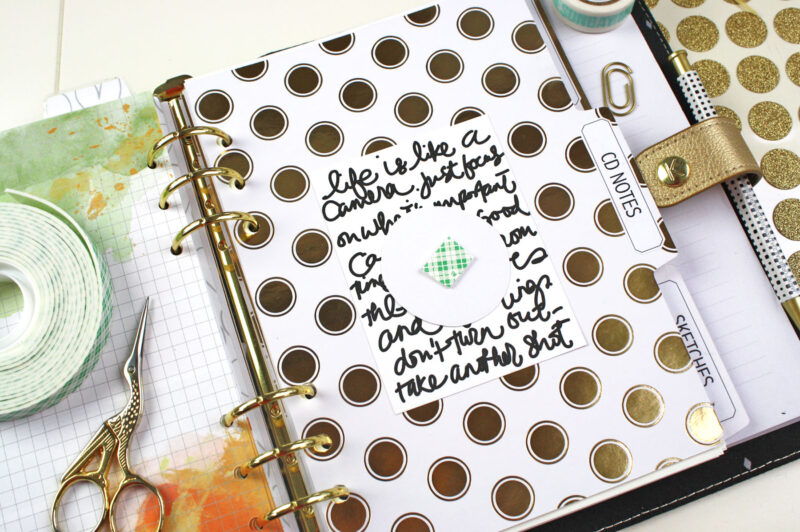 life is like a
Camera. Just focus
on what's important
Good
Ca
the
and
don't turn out-
take another shot
CD NOTES
SKETCHES